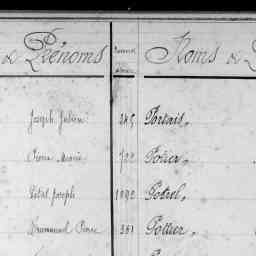 de Prénoms Noms de
Joseph Julien 245 Portais,
Pierre Marie 722 Potier,
Vital Joseph 1092 Potrel,
Emmanuel Pierre 381 Pottier,